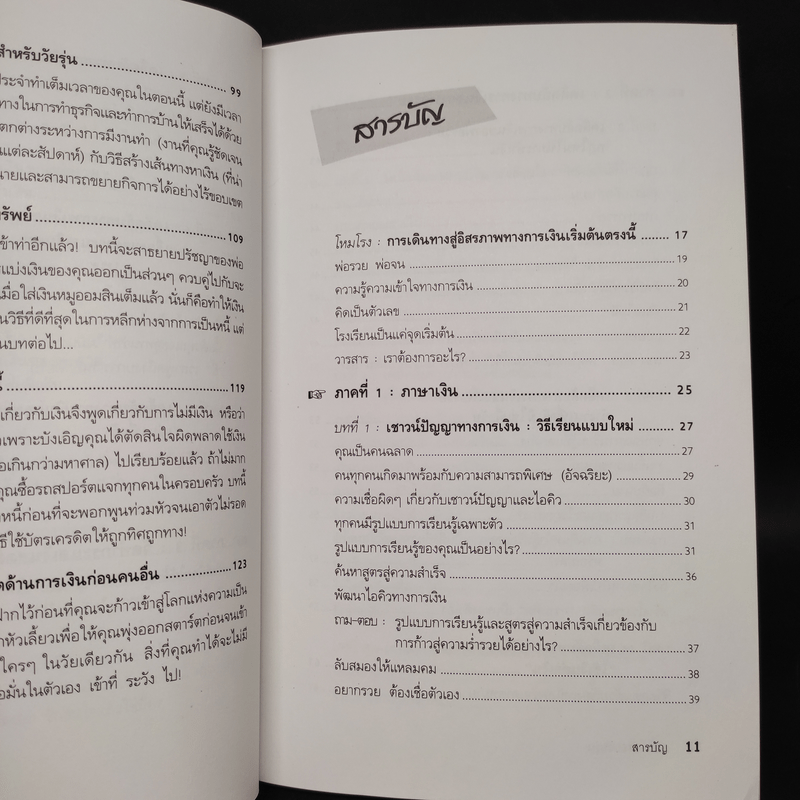 สำหรับวัยรุ่น ........ 99
ประจำทำเต็มเวลาของคุณในตอนนี้ แต่ยังมีเวลา
ทางในการทำธุรกิจและทำการบ้านให้เสร็จได้ด้วย
ตกต่างระหว่างการมีงานทำ (งานที่คุณรู้ชัดเจน
นแต่ละสัปดาห์) กับวิธีสร้างเส้นทางหาเงิน (ที่น่า
นายและสามารถขยายกิจการได้อย่างไร้ขอบเขต
รัพย์ ........ 109
ข้าท่าอีกแล้ว! บทนี้จะสาธยายปรัชญาของพ่อ
รแบ่งเงินของคุณออกเป็นส่วนๆ ควบคู่ไปกับจะ
เมื่อใส่เงินหมูออมสินเต็มแล้ว นั่นก็คือทำให้เงิน
นวิธีที่ดีที่สุดในการหลีกห่างจากการเป็นหนี้ แต่
นบทต่อไป...
........ 119
เกี่ยวกับเงินจึงพูดเกี่ยวกับการไม่มีเงิน หรือว่า
เพราะบังเอิญคุณได้ตัดสินใจผิดพลาดใช้เงิน
อเกินกว่ามหาศาล) ไปเรียบร้อยแล้ว ถ้าไม่มาก
คุณซื้อรถสปอร์ตแจกทุกคนในครอบครัว บทนี้
หนี้ก่อนที่จะพอกพูนท่วมหัวจนเอาตัวไม่รอด
ธีใช้บัตรเครดิตให้ถูกทิศถูกทาง!
ตด้านการเงินก่อนคนอื่น ........ 123
ฝากไว้ก่อนที่คุณจะก้าวเข้าสู่โลกแห่งความเป็น
หัวเลี้ยวเพื่อให้คุณพุ่งออกสตาร์ตก่อนจนเข้า
ใครๆ ในวัยเดียวกัน สิ่งที่คุณทำได้จะไม่มี
อมั่นในตัวเอง เข้าที่ ระวัง ไป!
สารบัญ
โหมโรง : การเดินทางสู่อิสรภาพทางการเงินเริ่มต้นตรงนี้ ........ 17
พ่อรวย พ่อจน ........ 19
ความรู้ความเข้าใจทางการเงิน ........ 20
คิดเป็นตัวเลข ........ 21
โรงเรียนเป็นแค่จุดเริ่มต้น ........ 22
วารสาร : เราต้องการอะไร? ........ 23
☞ ภาคที่ 1 : ภาษาเงิน ........ 25
บทที่ 1 : เชาวน์ปัญญาทางการเงิน : วิธีเรียนแบบใหม่ ........ 27
คุณเป็นคนฉลาด ........ 27
คนทุกคนเกิดมาพร้อมกับความสามารถพิเศษ (อัจฉริยะ) ........ 29
ความเชื่อผิดๆ เกี่ยวกับเชาวน์ปัญญาและไอคิว ........ 30
ทุกคนมีรูปแบบการเรียนรู้เฉพาะตัว ........ 31
รูปแบบการเรียนรู้ของคุณเป็นอย่างไร? ........ 31
ค้นหาสูตรสู่ความสำเร็จ ........ 36
พัฒนาไอคิวทางการเงิน
ถาม-ตอบ : รูปแบบการเรียนรู้และสูตรสู่ความสำเร็จเกี่ยวข้องกับ
การก้าวสู่ความร่ำรวยได้อย่างไร? ........ 37
ลับสมองให้แหลมคม ........ 38
อยากรวย ต้องเชื่อตัวเอง ........ 39
สารบัญ 11